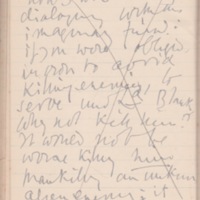 dialogue with an
imaginary friend:
if you were obliged
in order to avoid
killing enemies to
serve under Blank
why not kill him?
It would not be
worse killing him
than killing an unknown
enemy: it